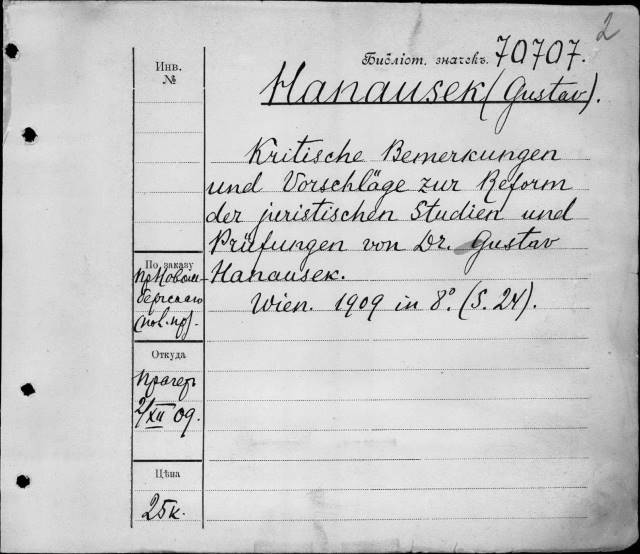 2
Инв.
№
Библіот. значекъ. 70707.
Hanausek (Gustav).
Kritische Bemerkungen
und Vorschläge zur Reform
der juristischen Studien und
Prüfungen von Dr. Gustav
Hanausek.
Wien. 1909 in 8°. (S. 24).
По заказу
Откуда
2/XII 09.
Цѣна
25к.